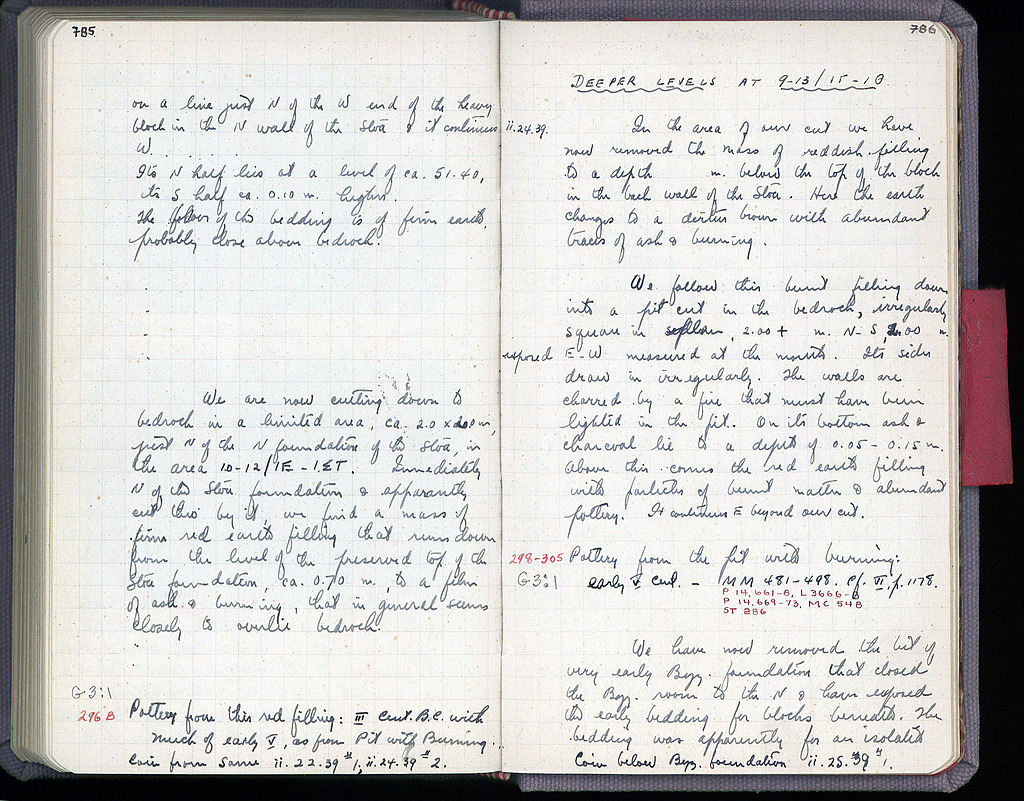 785
on a line just N of the W end of the heavy
block in the N wall of the Stoa & it continues
W.
Its N half lies at a level of ca. 51.40,
its S half ca. 0.10 m. higher.
The floor of the bedding is of firm earth,
probably close above bedrock.
We are now cutting down to
bedrock in a limited area, ca. 2.0 × 2.00 m,
just N of the N foundation of the Stoa, in
the area 10-12/ΙΕ-ΙΣΤ. Immediately
N of the Stoa foundation & apparently
cut thro' by it, we find a mass of
firm red earth filling that runs down
from the level of the preserved top of the
Stoa foundation, ca. 0.70 m, to a film
of ash & burning, that in general seems
closely to overlie bedrock.
G-3:1
296 B
Pottery from this red filling: III cent. B.C. with
much of early V, as from Pit with Burning.
Coin from same ii.22.39 #1, ii.24.39 #2.
786
DEEPER LEVELS AT 9-13/15-18
ii.24.39.
In the area of our cut we have
now removed the mass of reddish filling
to a depth m. below the top of the block
in the back wall of the Stoa. Here the earth
changes to a dirtier brown with abundant
traces of ash & burning.
We follow this burnt filling down
into a pit cut in the bedrock, irregularly
square in plan, 2.00+ m. N-S, 2.00 m.
exposed E-W measured at the mouth. Its sides
draw in irregularly. The walls are
charred by a fire that must have been
lighted in the pit. On its bottom ash &
charcoal lie to a depth of 0.05-0.15 m.
Above this comes the red earth filling
with particles of burnt matter & abundant
pottery. It continues E beyond our cut.
298-305
G-3:1
Pottery from the pit with burning:
early V cent. - MM 481-498. Cf. VI, p. 1178.
P 14,661-8, L 3666-8
P 14,669-73, MC 548
ST 286
We have now removed the bit of
very early Byz. foundation that closed
the Byz. room to the N & have exposed
the early bedding for blocks beneath. The
bedding was apparently for an isolated
Coin below Byz. foundation ii.25.39 #1.